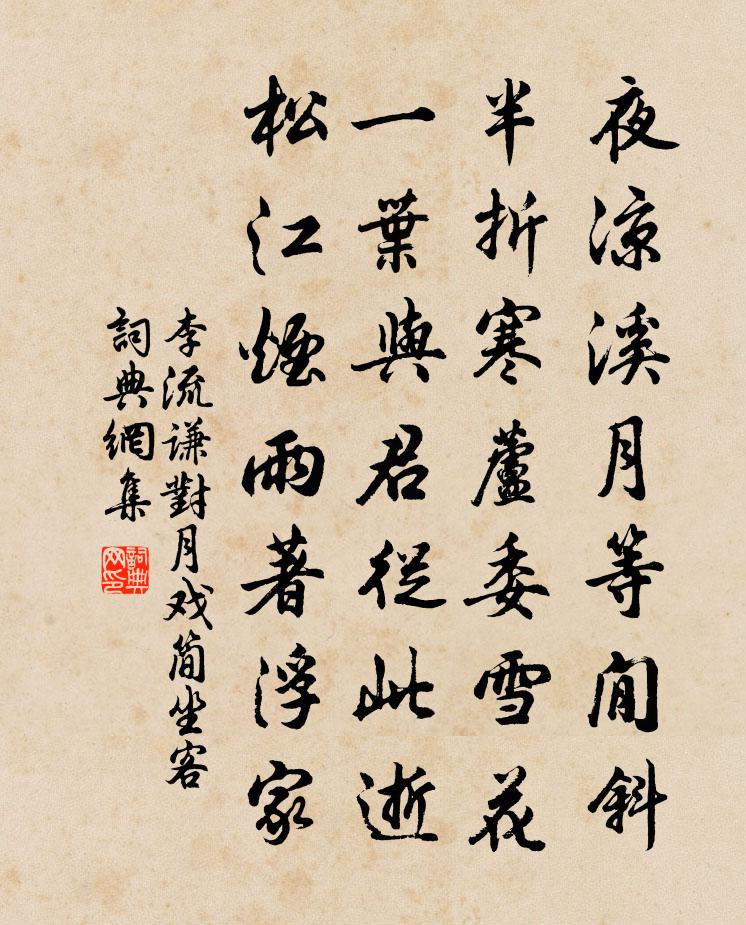 夜涼溪月等閒斜
半折寒蘆委雪花
一葉與君從此逝
松江煙雨著浮家
李流谦對月戏简坐客
詞典網集
詞典网印